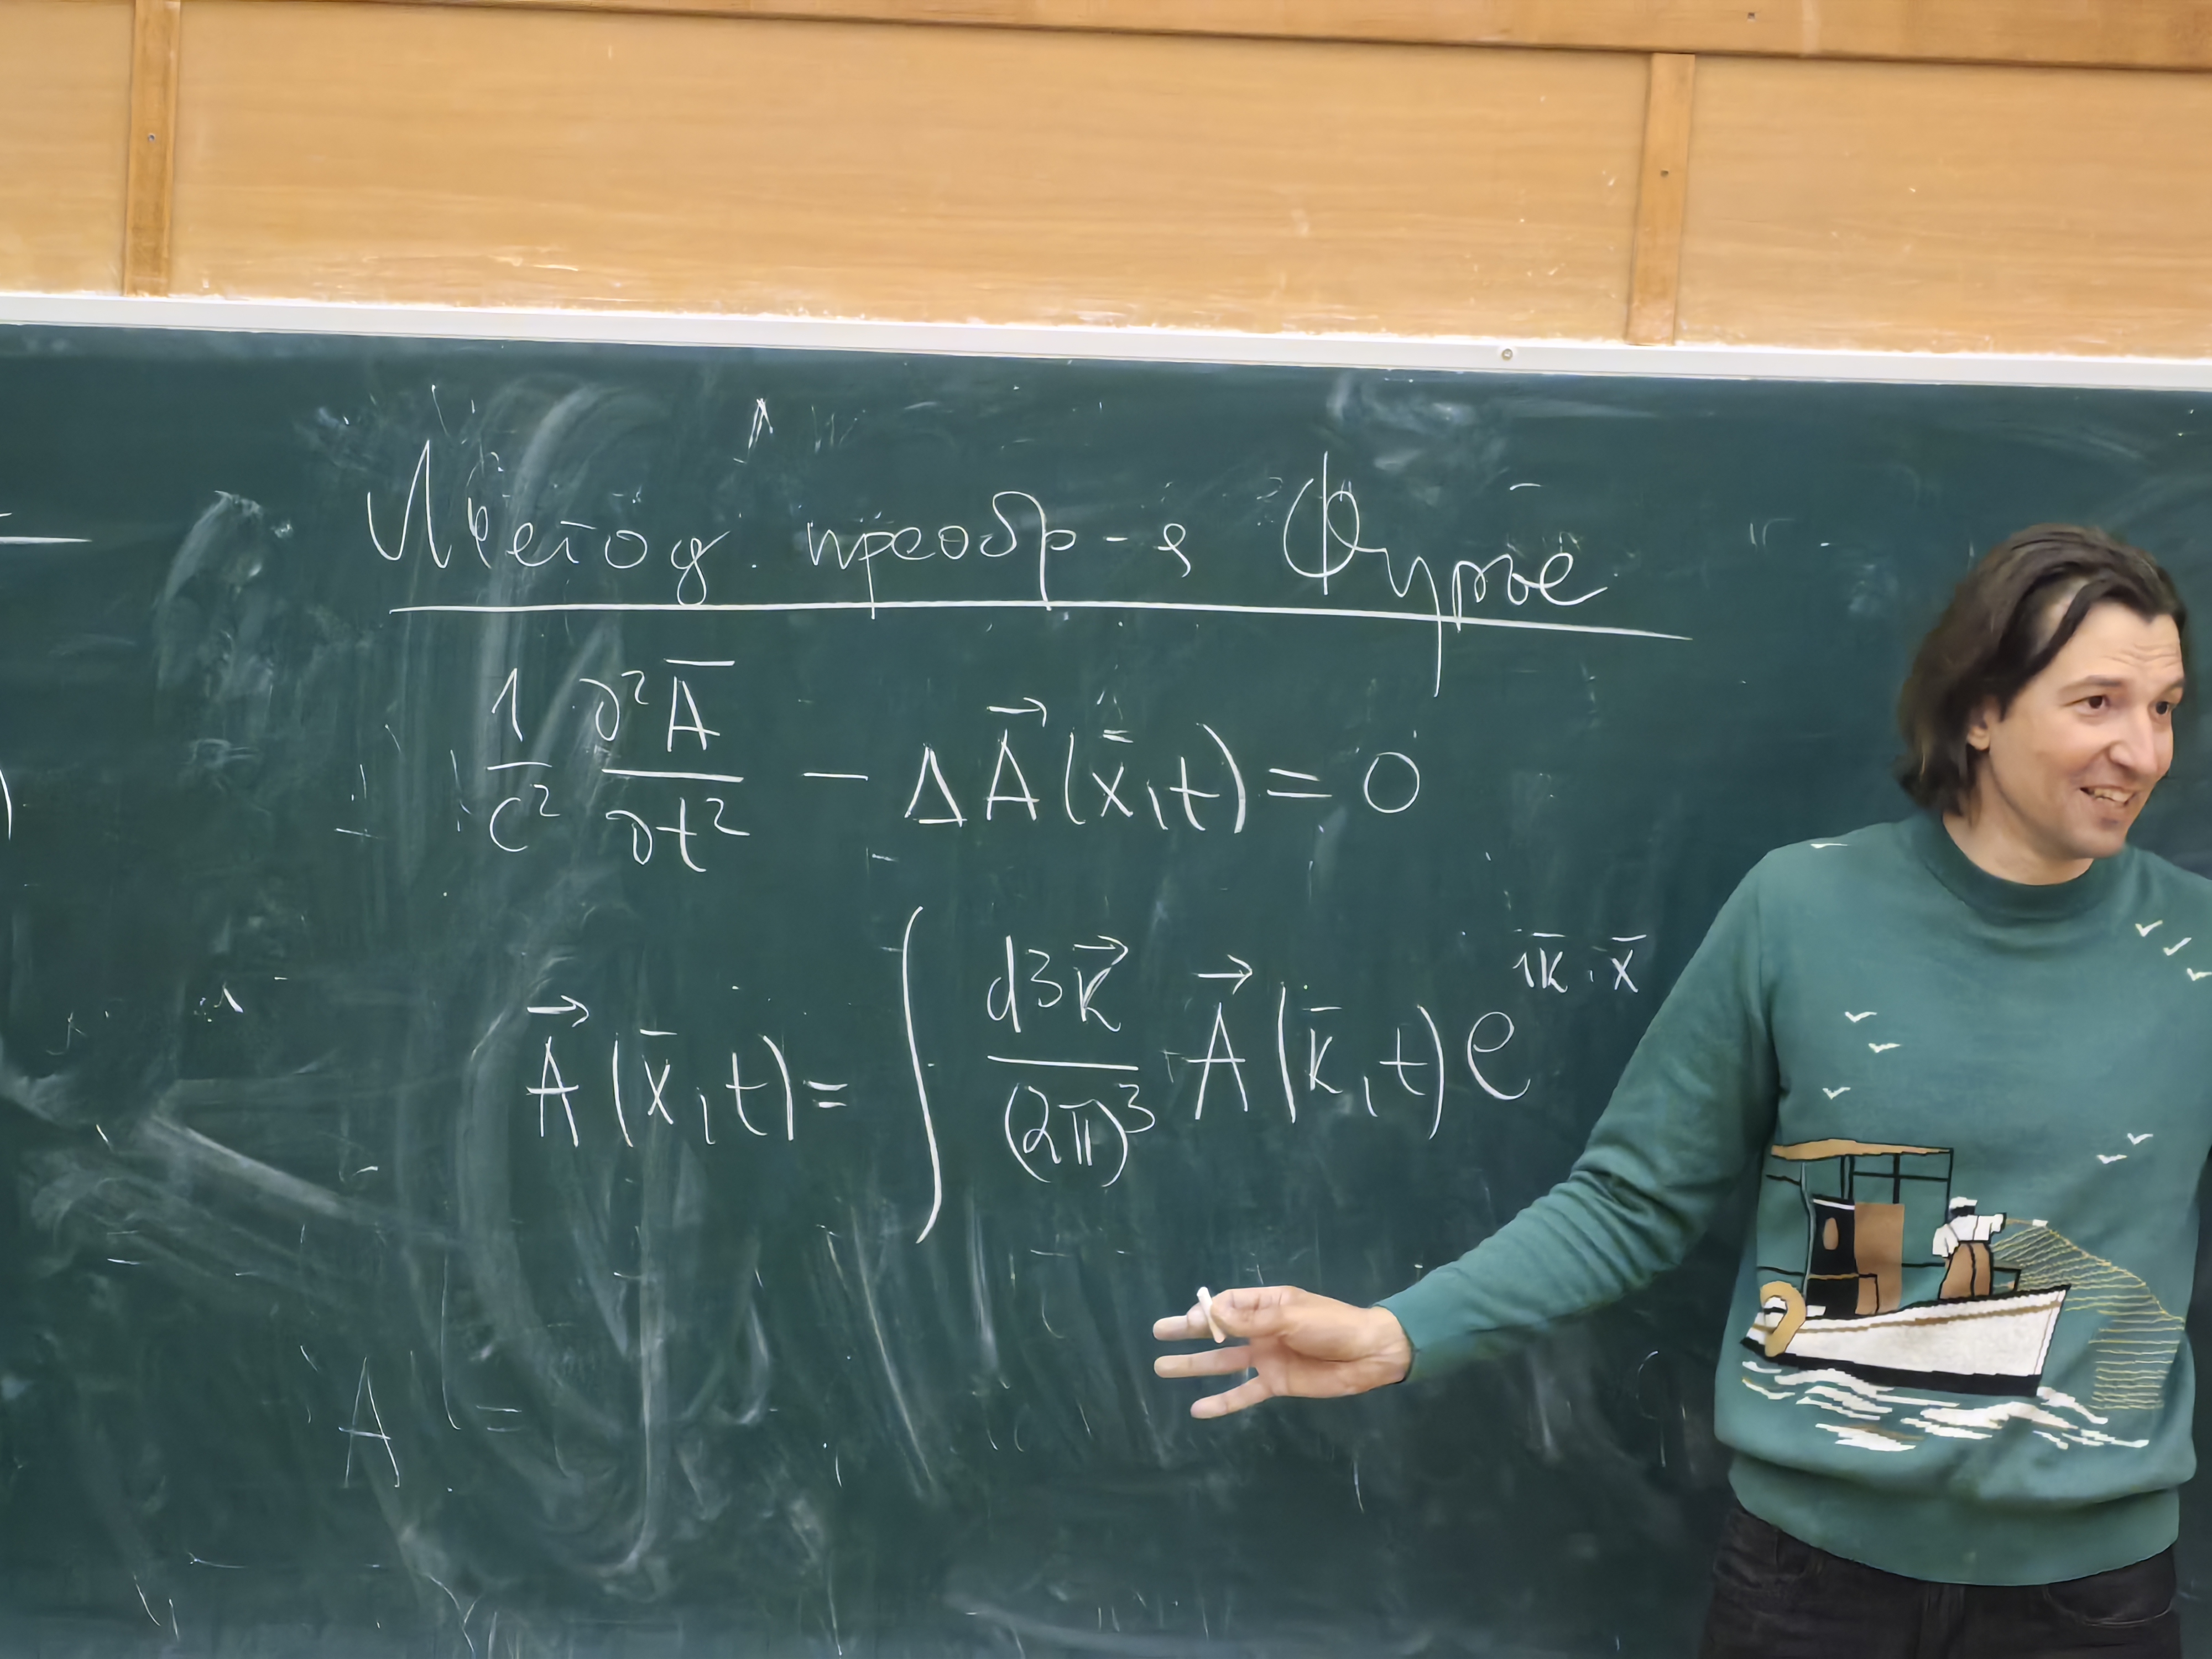 Метод преобр-я Фурье
1/c² ∂²A̅/∂t² − ΔA⃗(x̅,t) = 0
A⃗(x̅,t) = ∫ d3k⃗/(2π)³ A⃗(k̅,t) e^{ik̅·x̅}